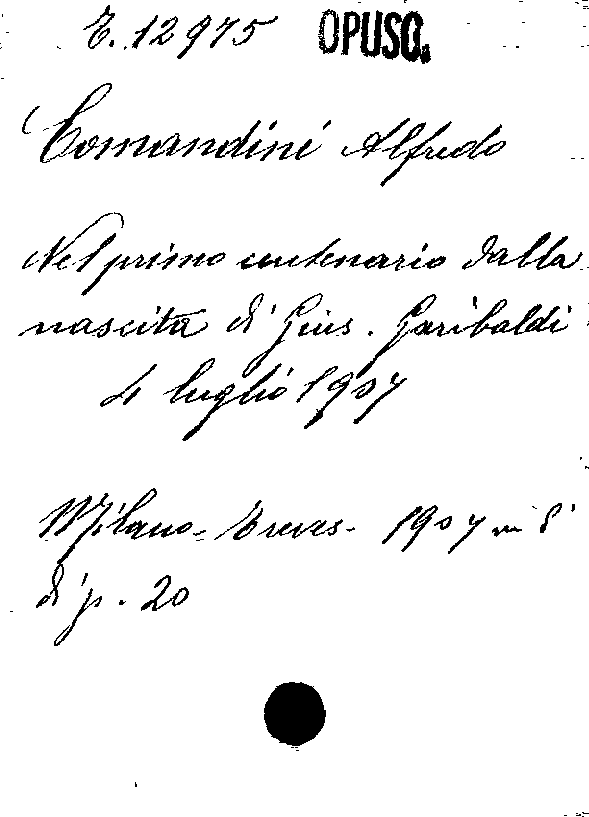 E. 12975 OPUSC.
Comandini Alfredo
Nel primo centenario dalla
nascita di Gius. Garibaldi
4 luglio 1907
Milano - Treves - 1907 in 8°
di p. 20